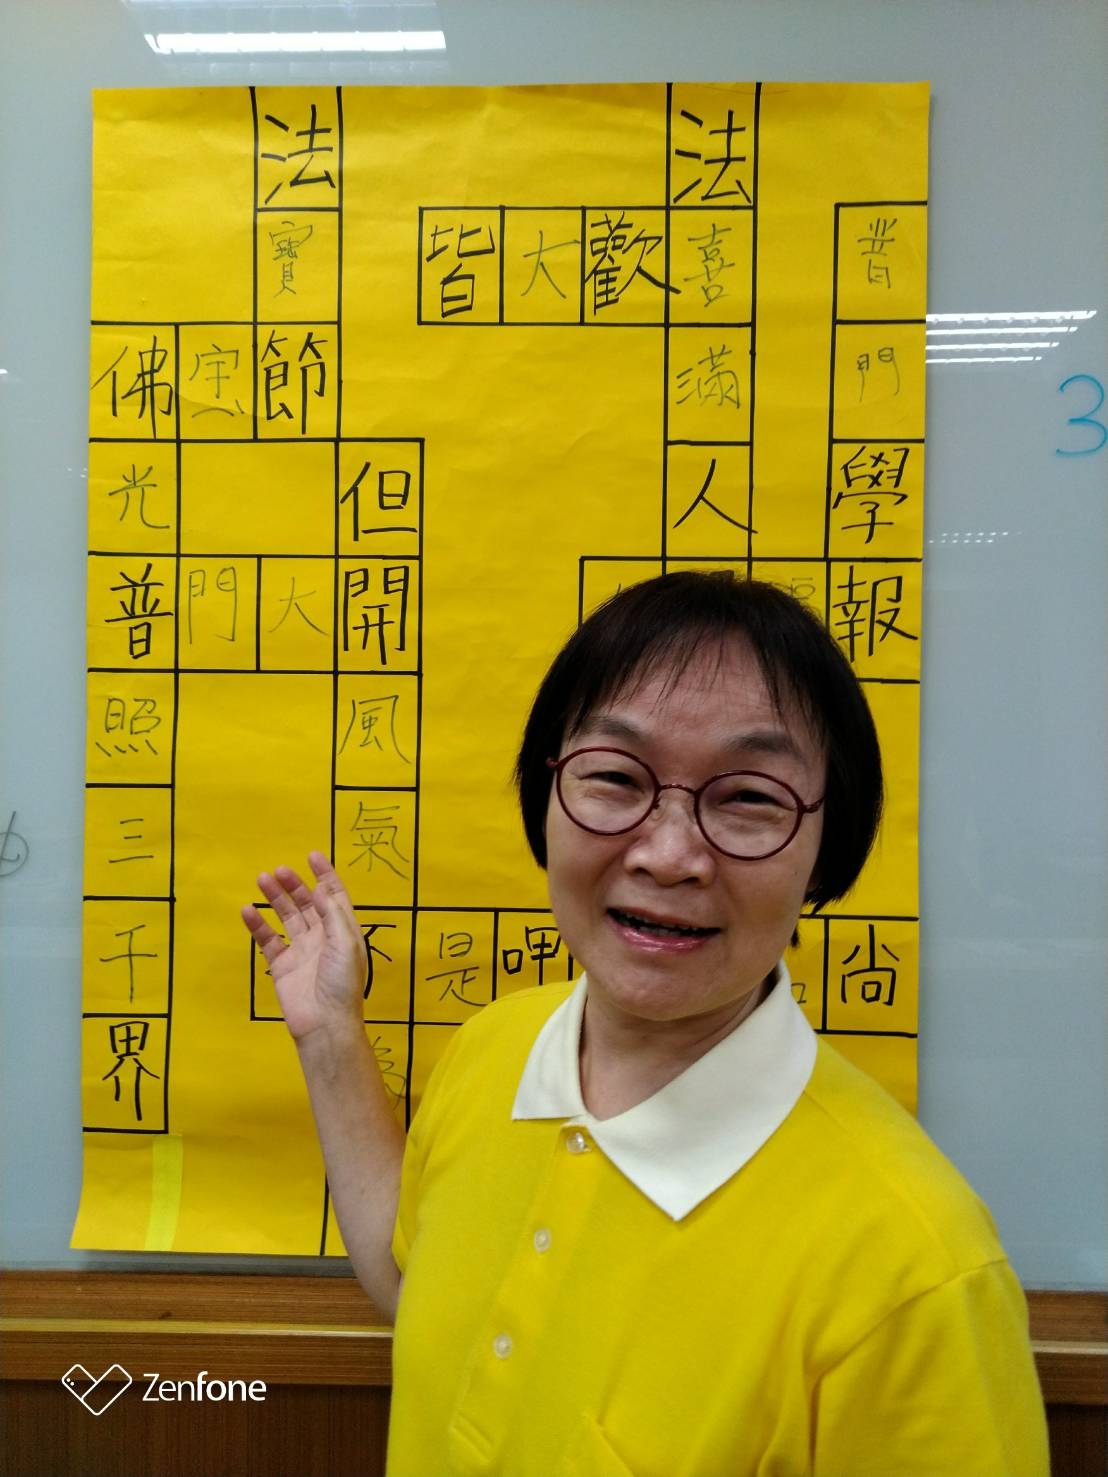 法
寶
節
佛 宗 節
佛
光
普
照
三
千
界
普 門 大 開
但
開
風
氣
不
為
不 是 呷
尚
皆 大 歡 喜
法
喜
滿
人
普
門
學
報
3
Zenfone